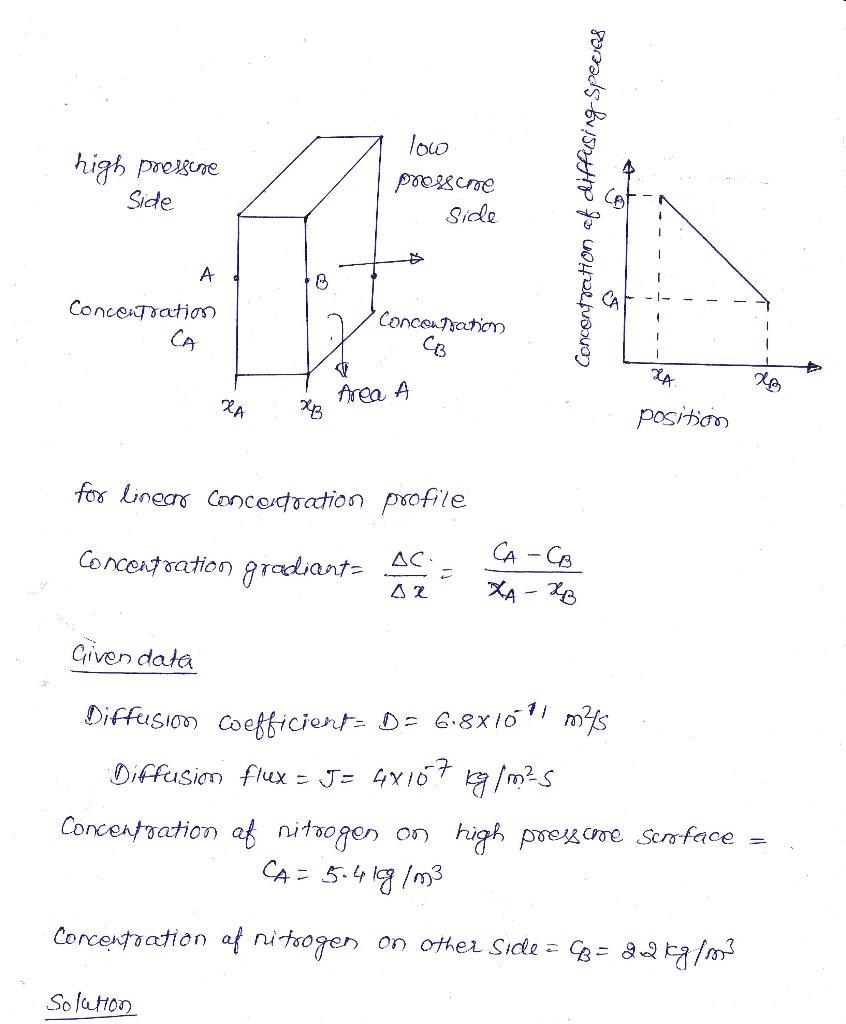 high pressure
Side
low
pressure
Side
A
B
Concentration
CA
Concentration
CB
Area A
xA
xB
Concentration of diffusing species
CB
CA
xA
xB
position
for linear concentration profile
Concentration gradiant = ΔC/Δx = (CA - CB)/(xA - xB)
Given data
Diffusion coefficient = D = 6.8×10⁻¹¹ m²/s
Diffusion flux = J = 4×10⁻⁷ kg/m²-s
Concentration of nitrogen on high pressure surface =
CA = 5.4 kg/m³
Concentration of nitrogen on other side = CB = 2.2 kg/m³
Solution